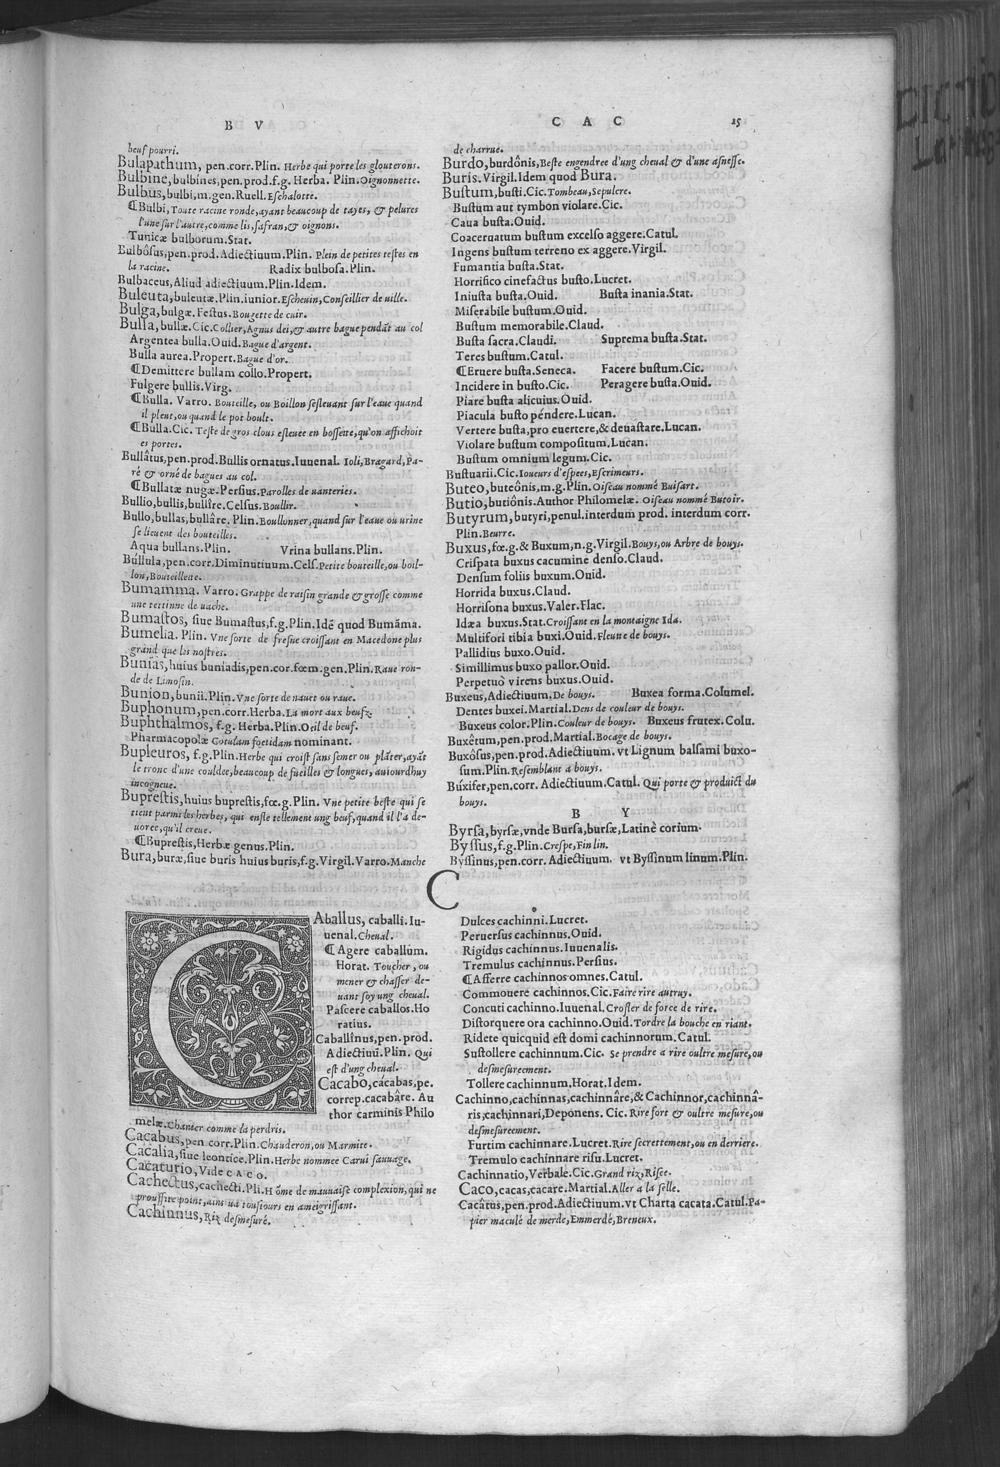 B V
C A C 25
beuf pourri.
Bulapathum, pen.corr.Plin. Herbe qui porte les glouterons.
Bulbine, bulbines, pen.prod.f.g. Herba. Plin. Oignonnette.
Bulbus, bulbi, m.gen. Ruell. Eschalotte.
¶Bulbi, Toute racine ronde, ayant beaucoup de tayes, & pelures
l'une sur l'autre, comme lis, safran, & oignons.
Tunicæ bulborum. Stat.
Bulbôsus, pen.prod. Adiectiuum. Plin. Plein de petites testes en
la racine. Radix bulbosa. Plin.
Bulbaceus, Aliud adiectiuum. Plin. Idem.
Buleuta, buleutæ. Plin. iunior. Escheuin, Conseillier de uille.
Bulga, bulgæ. Festus. Bougette de cuir.
Bulla, bullæ. Cic. Collier, Agnus dei, & autre bague pendāt au col
Argentea bulla. Ouid. Bague d'argent.
Bulla aurea. Propert. Bague d'or.
¶Demittere bullam collo. Propert.
Fulgere bullis. Virg.
¶Bulla. Varro. Bouteille, ou Boillon s'esleuant sur l'eaue quand
il pleut, ou quand le pot boult.
¶Bulla. Cic. Teste de gros clous esleuee en bossette, qu'on affichoit
es portes.
Bullâtus, pen.prod. Bullis ornatus. Iuuenal. Ioli, Bragard, Pa-
ré & orné de bagues au col.
¶Bullatæ nugæ. Persius. Parolles de uanteries.
Bullio, bullis, bullîre. Celsus. Boullir.
Bullo, bullas, bullâre. Plin. Boullonner, quand sur l'eaue ou urine
se lieuent des bouteilles.
Aqua bullans. Plin. Vrina bullans. Plin.
Búllula, pen.corr. Diminutiuum. Cels. Petite bouteille, ou boil-
lon, Bouteillette.
Bumamma. Varro. Grappe de raisin grande & grosse comme
une tettinne de uache.
Bumastos, siue Bumastus, f.g. Plin. Idē quod Bumāma.
Bumelia. Plin. Vne sorte de fresne croissant en Macedone plus
grand que les nostres.
Bunias, huius buniadis, pen.cor. fœm.gen. Plin. Raue ron-
de de Limosin.
Bunion, bunii. Plin. Vne sorte de nauet ou raue.
Buphonum, pen.corr. Herba. La mort aux beufz.
Buphthalmos, f.g. Herba. Plin. Oeil de beuf.
Pharmacopolæ Cotulam fœtidam nominant.
Bupleuros, f.g. Plin. Herbe qui croist sans semer ou plāter, ayāt
le tronc d'une couldee, beaucoup de fueilles & longues, auiourdhuy
incogneue.
Buprestis, huius buprestis, fœ.g. Plin. Vne petite beste qui se
tient parmi les herbes, qui enfle tellement ung beuf, quand il l'a de-
uoree, qu'il creue.
¶Buprestis, Herbæ genus. Plin.
Bura, buræ, siue buris huius buris, f.g. Virgil. Varro. Manche
de charrue.
Burdo, burdônis, Beste engendree d'ung cheual & d'une asnesse.
Buris. Virgil. Idem quod Bura.
Bustum, busti. Cic. Tombeau, Sepulcre.
Bustum aut tymbon violare. Cic.
Caua busta. Ouid.
Coaceruatum bustum excelso aggere. Catul.
Ingens bustum terreno ex aggere. Virgil.
Fumantia busta. Stat.
Horrifico cinefactus busto. Lucret.
Iniusta busta. Ouid. Busta inania. Stat.
Miserabile bustum. Ouid.
Bustum memorabile. Claud.
Busta sacra. Claudi. Suprema busta. Stat.
Teres bustum. Catul.
¶Eruere busta. Seneca. Facere bustum. Cic.
Incidere in busto. Cic. Peragere busta. Ouid.
Piare busta alicuius. Ouid.
Piacula busto péndere. Lucan.
Vertere busta, pro euertere, & deuastare. Lucan.
Violare bustum compositum. Lucan.
Bustum omnium legum. Cic.
Bustuarii. Cic. Ioueurs d'espees, Escrimeurs.
Buteo, buteônis, m.g. Plin. Oiseau nommé Buisart.
Butio, butiônis. Author Philomelæ. Oiseau nommé Butoir.
Butyrum, butyri, penul. interdum prod. interdum corr.
Plin. Beurre.
Buxus, fœ.g. & Buxum, n.g. Virgil. Bouys, ou Arbre de bouys.
Crispata buxus cacumine denso. Claud.
Densum foliis buxum. Ouid.
Horrida buxus. Claud.
Horrisona buxus. Valer. Flac.
Idæa buxus. Stat. Croissant en la montaigne Ida.
Multifori tibia buxi. Ouid. Fleute de bouys.
Pallidius buxo. Ouid.
Simillimus buxo pallor. Ouid.
Perpetuò virens buxus. Ouid.
Buxeus, Adiectiuum. De bouys. Buxea forma. Columel.
Dentes buxei. Martial. Dens de couleur de bouys.
Buxeus color. Plin. Couleur de bouys. Buxeus frutex. Colu.
Buxêtum, pen.prod. Martial. Bocage de bouys.
Buxôsus, pen.prod. Adiectiuum. vt Lignum balsami buxo-
sum. Plin. Resemblant a bouys.
Búxifer, pen.corr. Adiectiuum. Catul. Qui porte & produict du
bouys.
B Y
Byrsa, byrsæ, vnde Bursa, bursæ, Latinè corium.
Byssus, f.g. Plin. Crespe, Fin lin.
Býssinus, pen.corr. Adiectiuum. vt Byssinum linum. Plin.
C
CAballus, caballi. Iu-
uenal. Cheual.
¶Agere caballum.
Horat. Toucher, ou
mener & chasser de-
uant soy ung cheual.
Pascere caballos. Ho
ratius.
Caballînus, pen.prod.
Adiectiuū. Plin. Qui
est d'ung cheual.
Cacabo, cácabas, pe.
correp. cacabâre. Au
thor carminis Philo
melæ. Chanter comme la perdris.
Cacabus, pen.corr. Plin. Chauderon, ou Marmite.
Cacalia, siue leontice. Plin. Herbe nommee Carui sauuage.
Cacaturio, Vide CACO.
Cachectus, cachecti. Pli. Hōme de mauuaise complexion, qui ne
prouffite point, ains ua tousiours en ameigrissant.
Cachinnus, Riz desmesuré.
Dulces cachinni. Lucret.
Peruersus cachinnus. Ouid.
Rigidus cachinnus. Iuuenalis.
Tremulus cachinnus. Persius.
¶Afferre cachinnos omnes. Catul.
Commouere cachinnos. Cic. Faire rire autruy.
Concuti cachinno. Iuuenal. Crosler de force de rire.
Distorquere ora cachinno. Ouid. Tordre la bouche en riant.
Ridete quicquid est domi cachinnorum. Catul.
Sustollere cachinnum. Cic. Se prendre a rire oultre mesure, ou
desmesureement.
Tollere cachinnum. Horat. Idem.
Cachinno, cachinnas, cachinnâre, & Cachinnor, cachinnâ-
ris, cachinnari, Deponens. Cic. Rire fort & oultre mesure, ou
desmesureement.
Furtim cachinnare. Lucret. Rire secrettement, ou en derriere.
Tremulo cachinnare risu. Lucret.
Cachinnatio, Verbale. Cic. Grand riz, Risee.
Caco, cacas, cacare. Martial. Aller a la selle.
Cacâtus, pen.prod. Adiectiuum. vt Charta cacata. Catul. Pa-
pier maculé de merde, Emmerdé, Breneux.